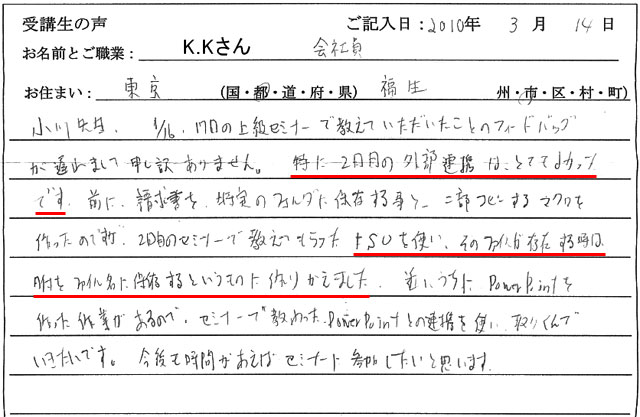 受講生の声 ご記入日：2010年 3 月 14 日
お名前とご職業： K.Kさん 会社員
お住まい： 東京 (国・都・道・府・県) 福生 州・市・区・村・町)
小川先生、 1/16、17日の上級セミナーで教えていただいたことのフィードバッグ
が遅れまして申し訳ありません。 特に2日目の外部連携はとてもよかった
です。前に、請求書を、特定のフォルダに保存する事と、二部コピーするマクロを
作ったのですが、2日目のセミナーで教えてもらったFSOを使い、そのファイルが存在する時は、
時間をファイル名に保存するというものに作りかえました。 近いうちに PowerPointを
作った作業があるので、セミナーで教わったPowerPointとの連携を使い、取りくんで
いきたいです。 今後も時間があえばセミナーに参加したいと思います。